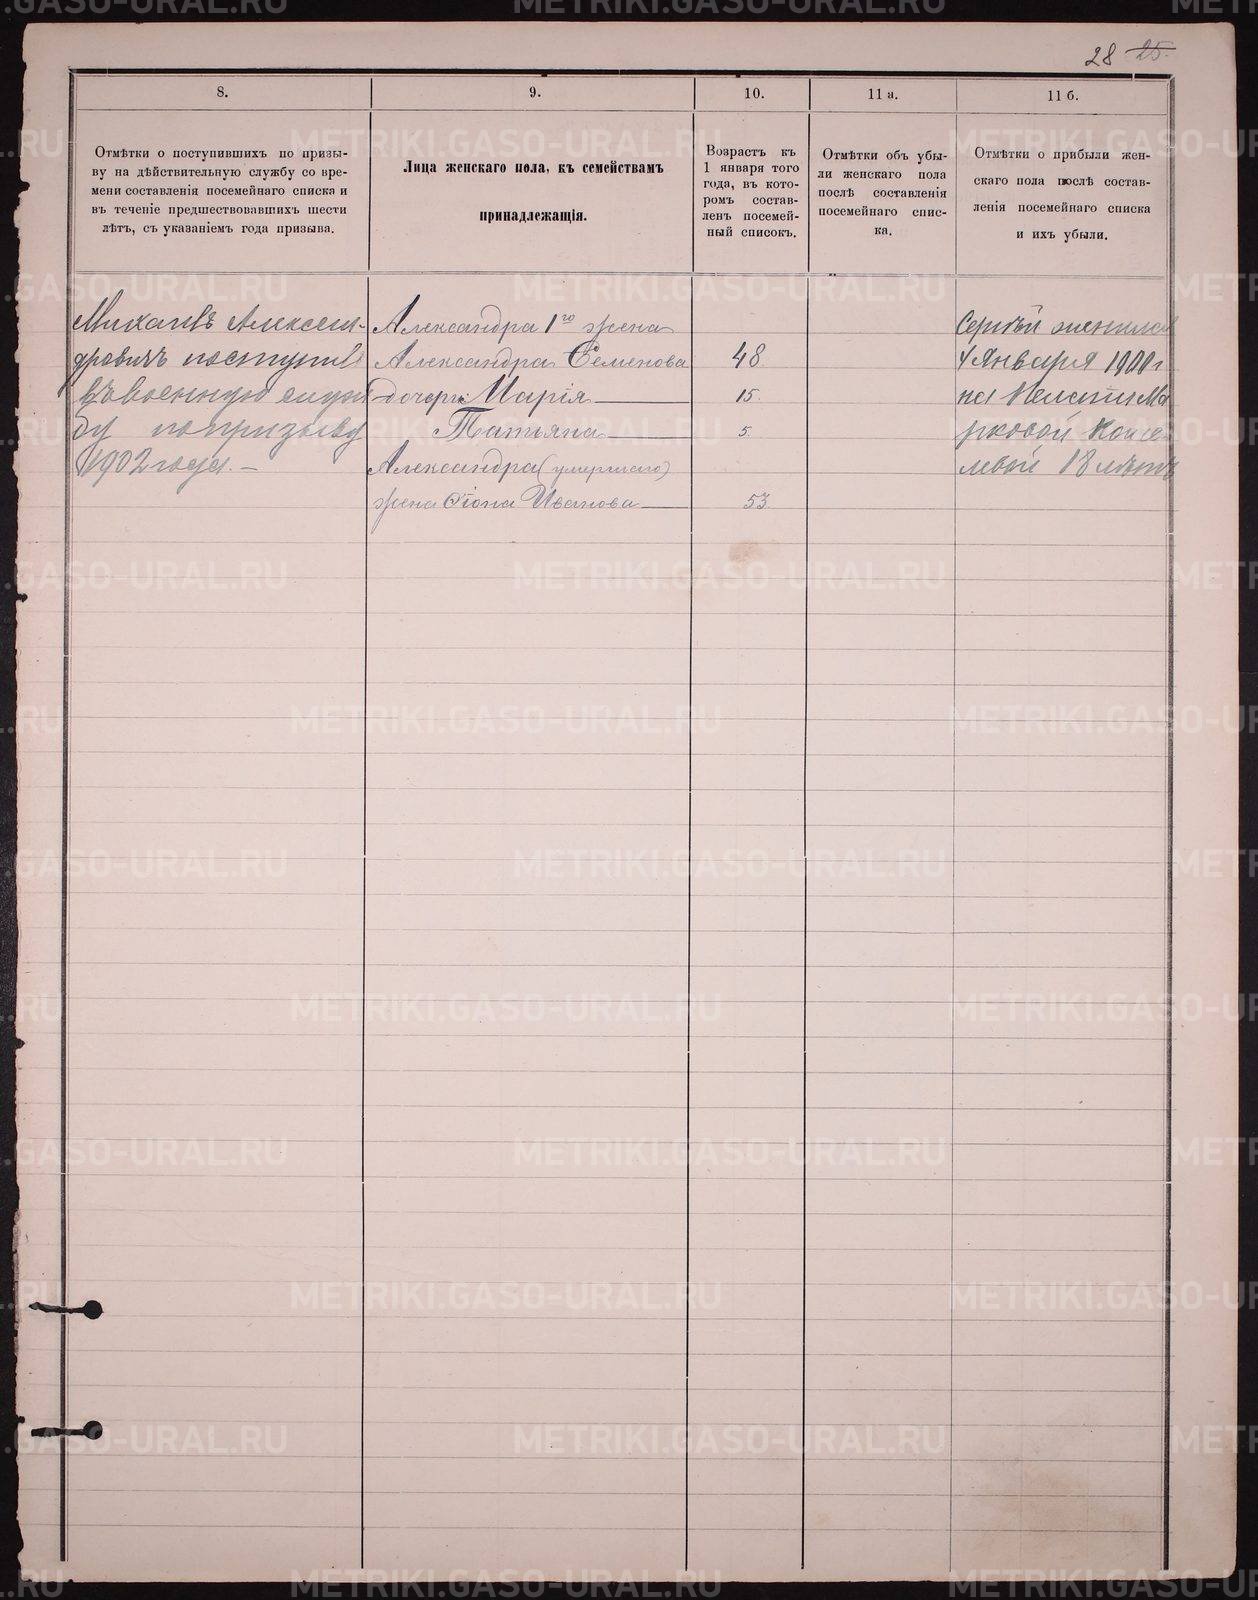 28 25.
8.
9.
10.
11 а.
11 б.
Отмѣтки о поступившихъ по призы-
ву на дѣйствительную службу со вре-
мени составленія посемейнаго списка и
въ теченіе предшествовавшихъ шести
лѣтъ, съ указаніемъ года призыва.
Лица женскаго пола, къ семействамъ
принадлежащія.
Возрастъ къ
1 января того
года, въ кото-
ромъ состав-
ленъ посемей-
ный списокъ.
Отмѣтки объ убы-
ли женскаго пола
послѣ составленія
посемейнаго спис-
ка.
Отмѣтки о прибыли жен-
скаго пола послѣ состав-
ленія посемейнаго списка
и ихъ убыли.
Михаилъ Алексан-
дровичъ поступилъ
въ военную служ
бу по призыву
1902 года. –
Александра 1го жена
Александра Семенова 48
дочери Марія 15.
Татьяна 5.
Александра (умершаго)
жена Ѳіона Иванова 53.
Сергѣй женился
4 Января 1900 г
на Пелагіи Ма
рковой
левой 18 лѣтъ
METRIKI.GASO-URAL.RU